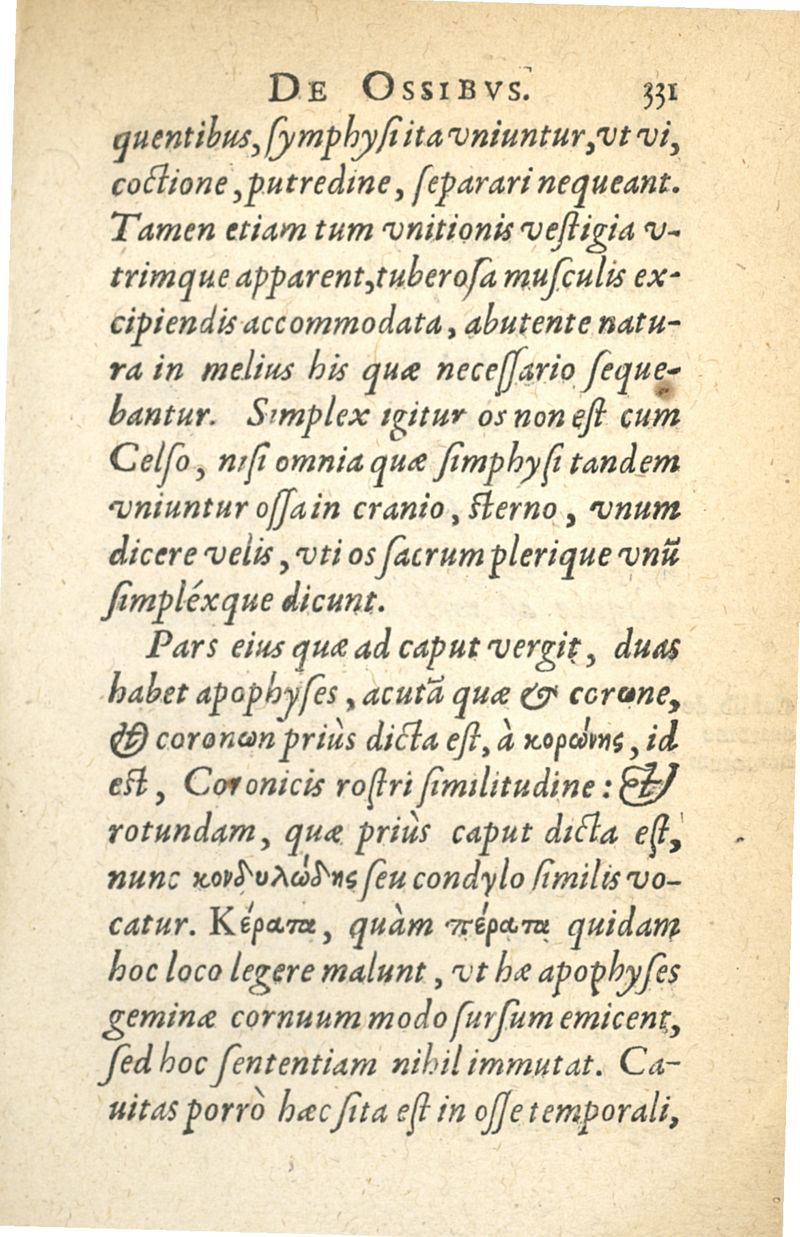 DE OSSIBVS. 331
quentibus, ſymphyſi ita vniuntur, vt vi,
coctione, putredine, ſeparari nequeant.
Tamen etiam tum vnitionis veſtigia v-
trimque apparent, tuberoſa muſculis ex-
cipiendis accommodata, abutente natu-
ra in melius his quæ neceſſario ſeque-
bantur. Simplex igitur os non eſt cum
Celſo, niſi omnia quæ ſimphyſi tandem
vniuntur oſſa in cranio, sterno, vnum
dicere velis, vti os ſacrum plerique vnū
ſimpléxque dicunt.
Pars eius quæ ad caput vergit, duas
habet apophyſes, acutā quæ & corωne,
& coronωn priùs dicta eſt, à κορώνης, id
est, Coronicis roſtri ſimilitudine: &
rotundam, quæ priùs caput dicta eſt,
nunc κονδυλώδης ſeu condylo ſimilis vo-
catur. Κέρατα, quàm πέρατα quidam
hoc loco legere malunt, vt hæ apophyſes
geminæ cornuum modo ſurſum emicent,
ſed hoc ſententiam nihil immutat. Ca-
uitas porrò hæc ſita eſt in oſſe temporali,